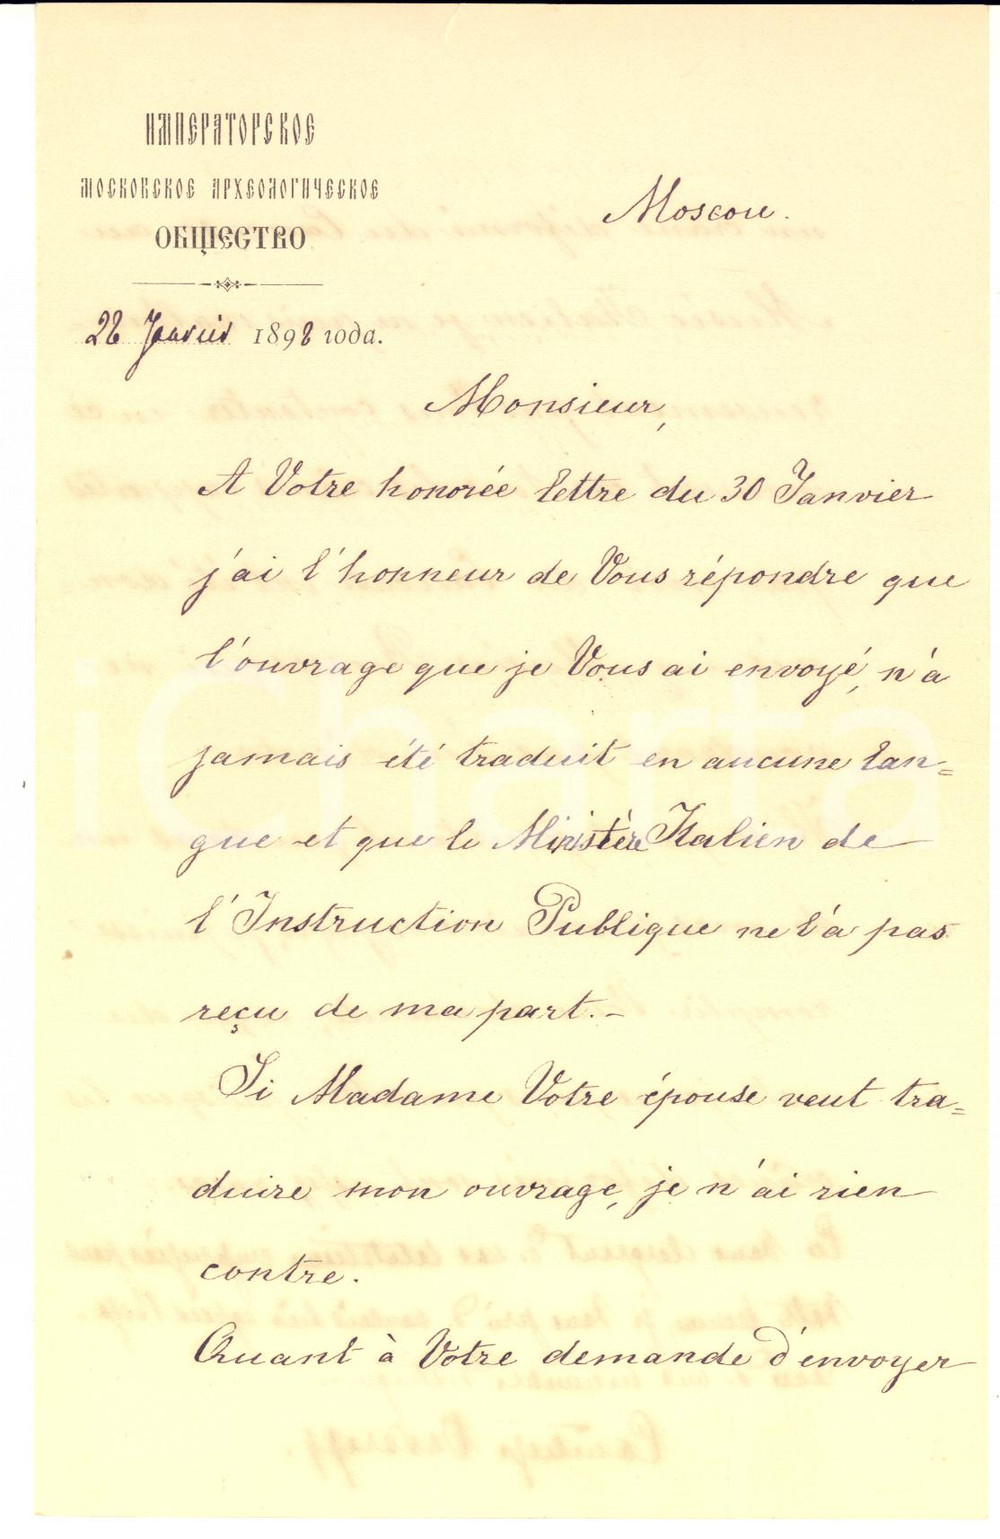 ИМПЕРАТОРСКОЕ
МОСКОВСКОЕ АРХЕОЛОГИЧЕСКОЕ
ОБЩЕСТВО
Moscou.
28 Janvier 1898 года.
Monsieur,
A Votre honorée lettre du 30 Janvier
j'ai l'honneur de Vous répondre que
l'ouvrage que je Vous ai envoyé, n'a
jamais été traduit en aucune lan=
gue et que le Ministère Italien de
l'Instruction Publique ne l'a pas
reçu de ma part.-
Si Madame Votre épouse veut tra=
duire mon ouvrage, je n'ai rien
contre.
Quant à Votre demande d'envoyer